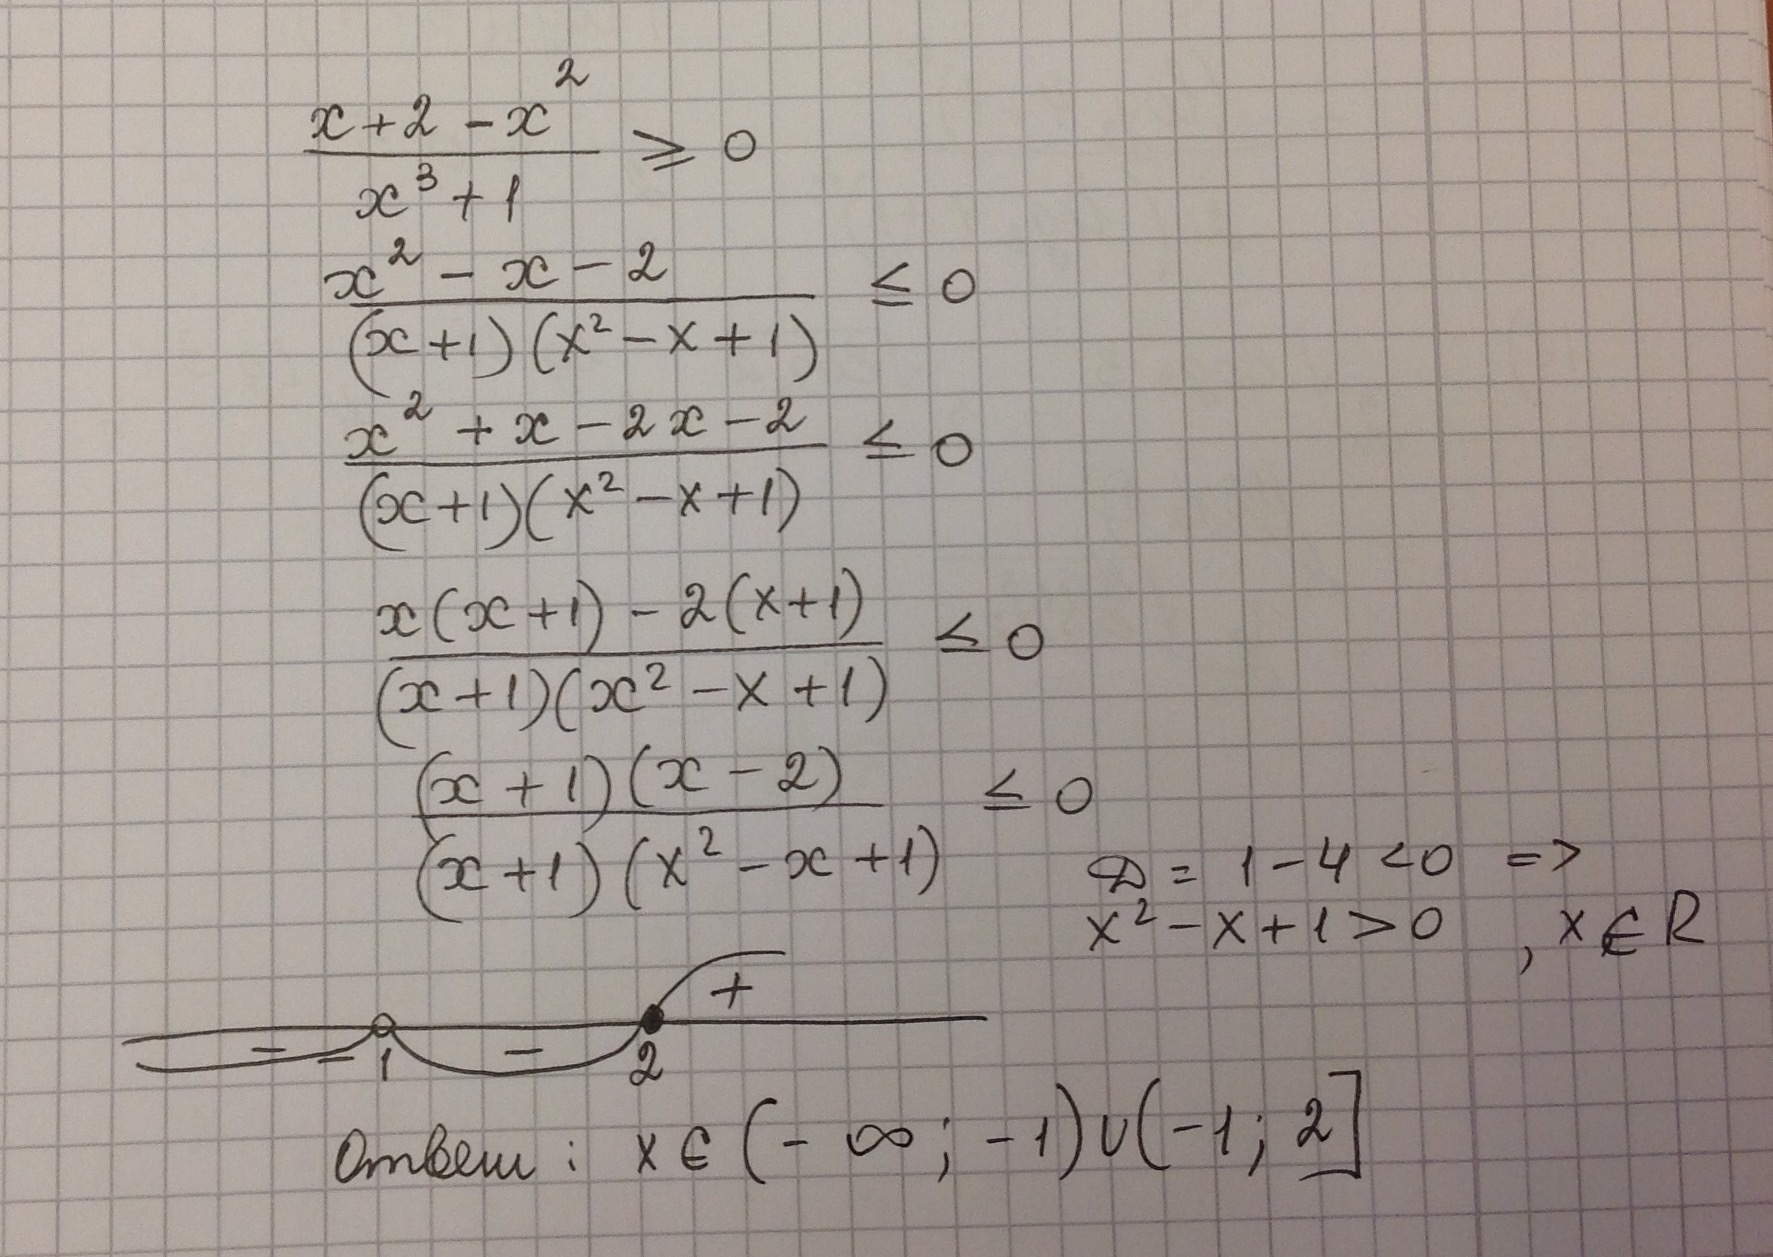 x+2-x²
――― ≥ 0
x³+1
x²-x-2
――― ≤ 0
(x+1)(x²-x+1)
x²+x-2x-2
――― ≤ 0
(x+1)(x²-x+1)
x(x+1)-2(x+1)
――― ≤ 0
(x+1)(x²-x+1)
(x+1)(x-2)
――― ≤ 0
(x+1)(x²-x+1)
D = 1-4<0 =>
x²-x+1>0 , x∈R
+
- -
-1 2
Ответ: x∈(-∞; -1)∪(-1; 2]